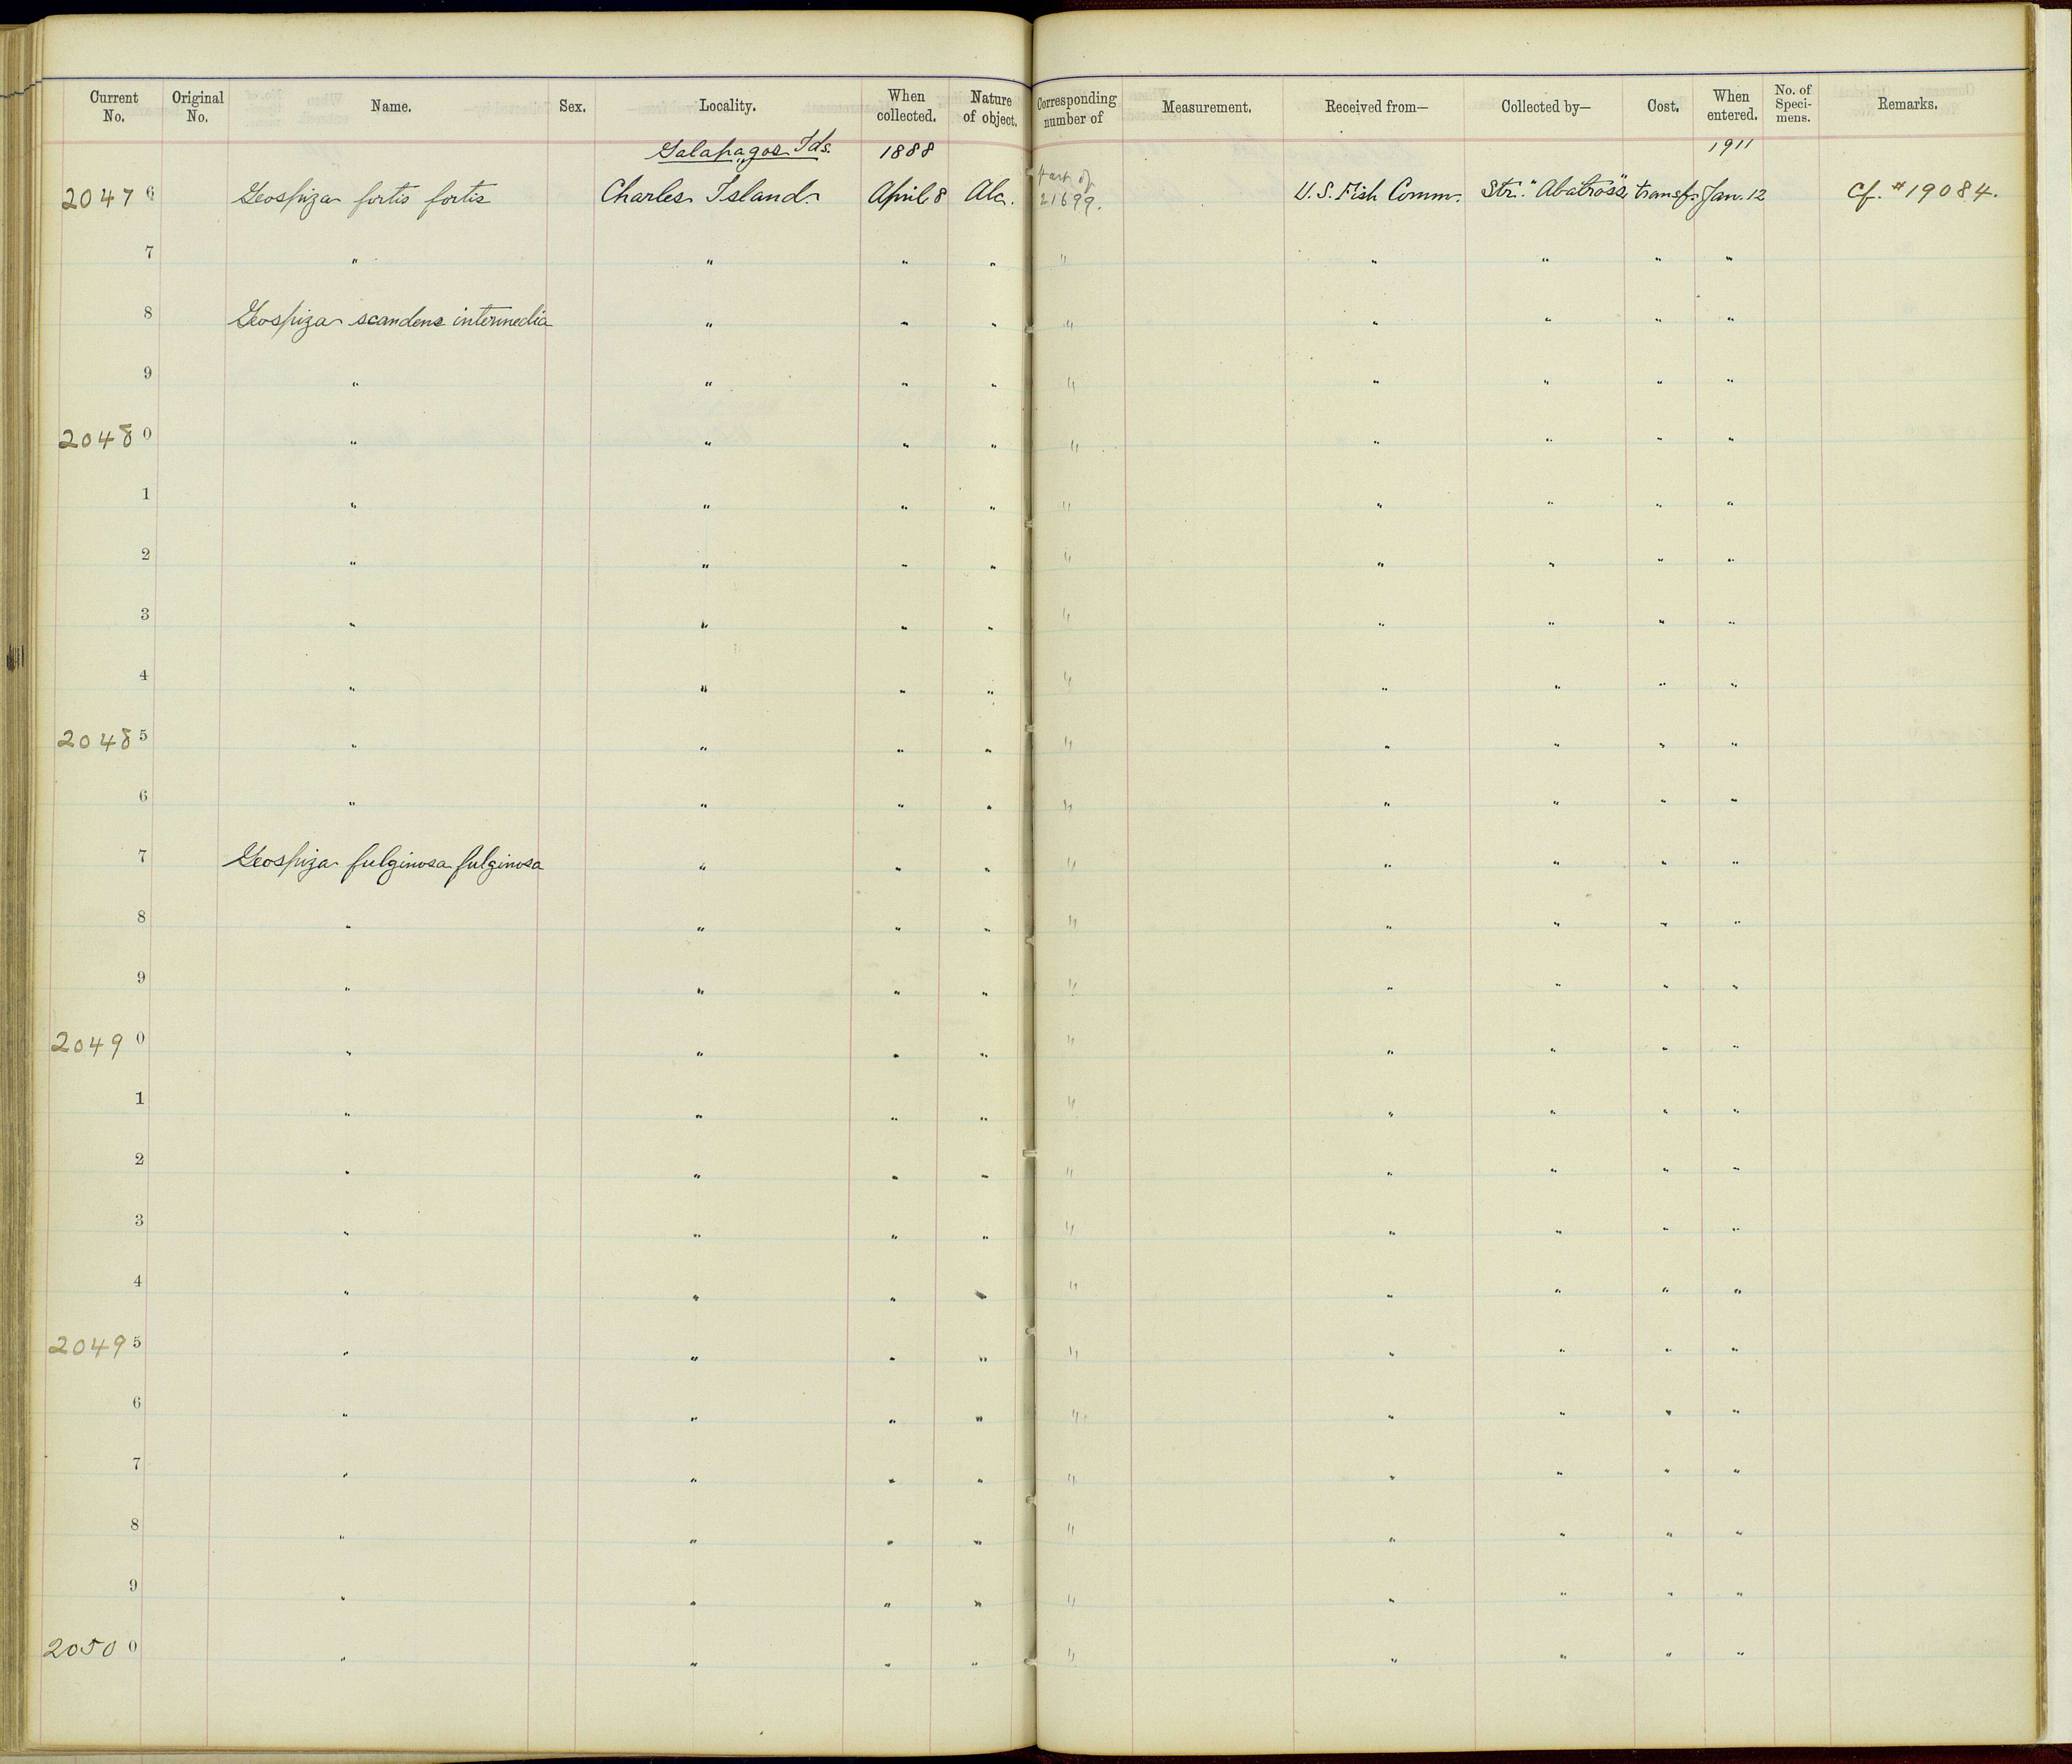 Current No. Original No. Name. Sex. Locality. When collected. Nature of object. Corresponding number of Measurement. Received from— Collected by— Cost. When entered. No. of Speci-mens. Remarks.
Galapagos Ids. 1888 1911
20476 Geospiza fortis fortis Charles Island. April 8 Alc. Part of 21699. U.S. Fish Comm. Str. "Abatross" transf. Jan. 12 Cf. #19084.
7 " " " " " " " " "
8 Geospiza scandens intermedia " " " " " " " "
9 " " " " " " " " "
20480 " " " " " " " " "
1 " " " " " " " " "
2 " " " " " " " " "
3 " " " " " " " " "
4 " " " " " " " " "
20485 " " " " " " " " "
6 " " " " " " " " "
7 Geospiza fulginosa fulginosa " " " " " " " "
8 " " " " " " " " "
9 " " " " " " " " "
20490 " " " " " " " " "
1 " " " " " " " " "
2 " " " " " " " " "
3 " " " " " " " " "
4 " " " " " " " " "
20495 " " " " " " " " "
6 " " " " " " " " "
7 " " " " " " " " "
8 " " " " " " " " "
9 " " " " " " " " "
20500 " " " " " " " " "